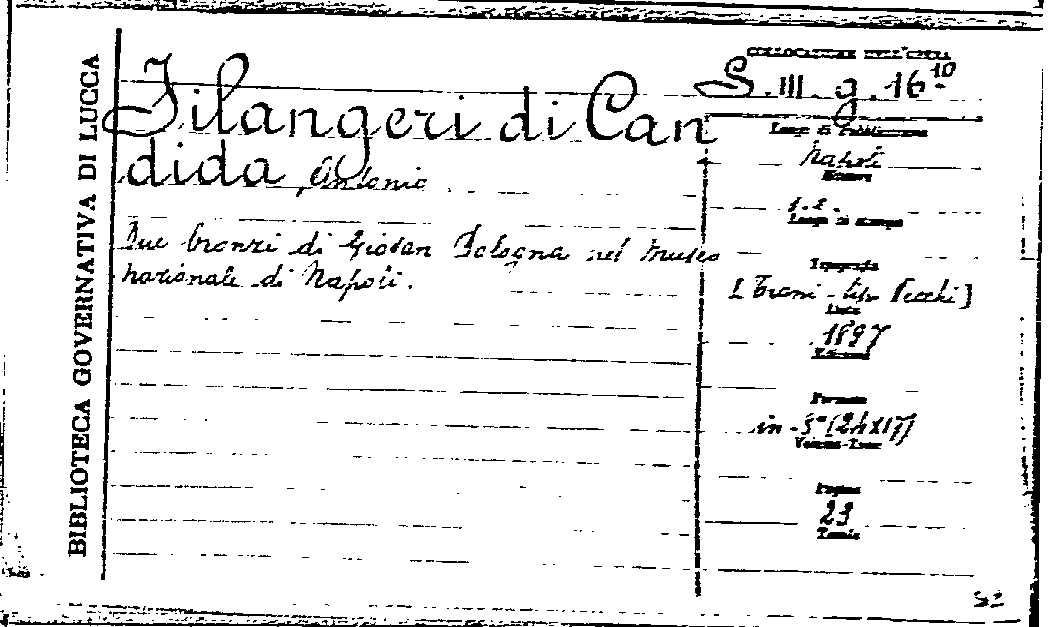 BIBLIOTECA GOVERNATIVA DI LUCCA
Filangeri di Can
dida, Antonio
Due bronzi di Giovan Bologna nel Museo
nazionale di Napoli.
COLLOCAZIONE DELL'OPERA
S. III. g. 16.10
Luogo di Pubblicazione
Napoli
Editore
s. e.
Luogo di stampa
Tipografia
[Trani - tip. Vecchi]
Data
1897
Edizione
Formato
in-8° (24x17)
Pagine
23
Tomie